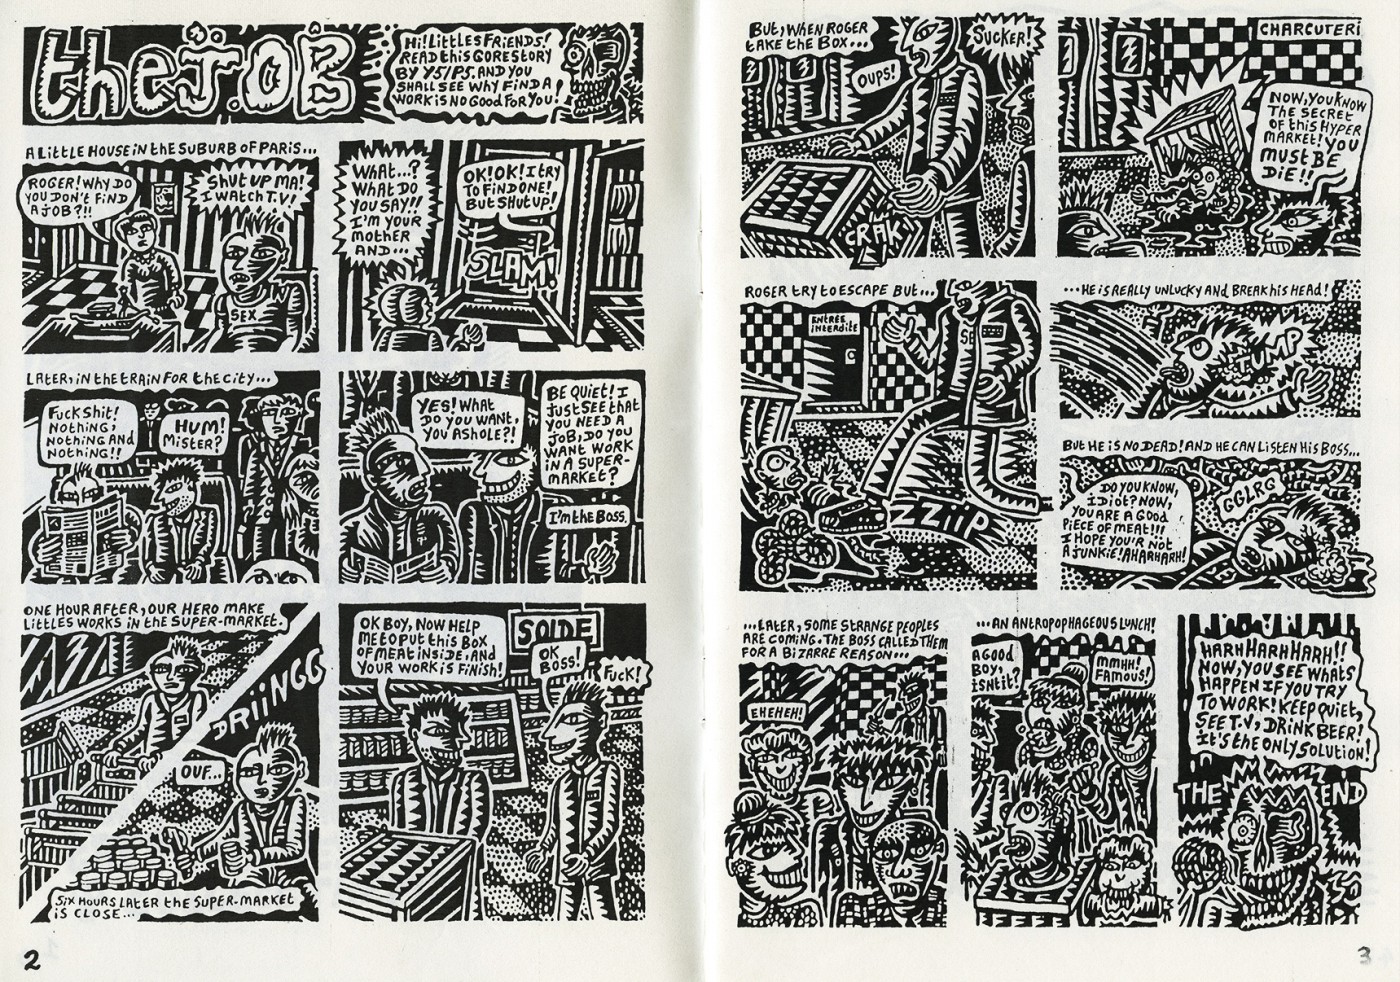 the JOB
Hi! LittLES FRIENDS!
READ this GORE StORY
BY Y5/P5. AND YOU
SHALL SEE WHY FIND A
WORK is NO GOOD FOR YOU!
A LittLE HOUSE IN the SUBURB OF PARIS...
ROGER! WHY DO
YOU DON't FIND
A JOB?!!
SHUt UP MA!
I WAtCH T.V!
SEX
WHAt...?
WHAt DO
YOU SAY!!
I'M YOUR
MOtHER
AND...
OK! OK! I tRY
tO FIND ONE!
BUt SHUt UP!
SLAM!
LAtER, IN thE tRAIN FOR thE CitY...
FUCK SHit!
NOtHiNG,
NOtHiNG AND
NOtHiNG!!
HUM!
MiSTER?
YES! WHAt
DO YOU WANT,
YOU ASHOLE?!
BE QUIEt! I
JUSt SEE tHAt
YOU NEED A
JOB, DO YOU
WANt WORK
IN A SUPER-
MARKEt?
I'M thE BOSS.
ONE HOUR AFtER, OUR HERO MAKE
LittLES WORKS IN thE SUPER-MARKEt.
DRiiNGG
OUF...
SIX HOURS LAtER thE SUPER-MARKEt
iS CLOSE...
OK BOY, NOW HELP
ME tO PUt tHiS BOX
OF MEAt iNSiDE, AND
YOUR WORK IS FiNiSH!
SOLDE
OK
BOSS!
FUCK!
2
BUt, WHEN ROGER
tAKE thE BOX...
OUPS!
SUCKER!
CRAK!
CHARCUtERi
NOW, YOU KNOW
THE SECRET
OF tHiS HYPER
MARKEt! YOU
MUSt BE
DiE!!!
ROGER tRY tO ESCAPE BUt...
ENtRÉE
INtERDitE
SE
ZZiiP
...HE iS REALLY UNLUCKY AND BREAK HiS HEAD!
BUt HE iS NO DEAD! AND HE CAN LiStEN HiS BOSS...
DO YOU KNOW,
IDiOt? NOW,
YOU ARE A GOOD
PiECE OF MEAt!!!
I HOPE YOU'R NOt
A JUNKiE! AHARHARH!
GGLRG
...LAtER, SOME StRANGE PEOPLES
ARE COMiNG. THE BOSS CALLED THEM
FOR A BiZARRE REASON...
EHEHEH!
...AN ANtROPOPHAGEOUS LUNCH!
A GOOD
BOY,
ISNtit?
MMHH!
FAMOUS!
HARHHARHHARH!!
NOW, YOU SEE WHATS
HAPPEN iF YOU tRY
TO WORK! KEEP QUiEt,
SEE T.V, DRiNK BEER!
It'S thE ONLY SOLUtiON!
THE END
3